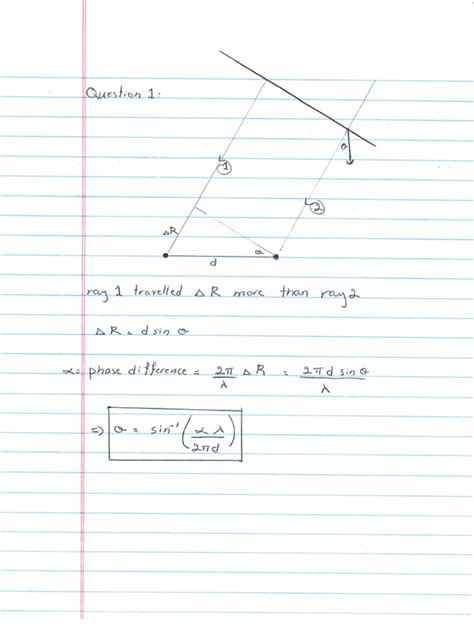 Question 1:
θ
1
2
ΔR
θ
d
ray 1 travelled ΔR more than ray 2
ΔR = d sin θ
α = phase difference = 2π/λ ΔR = 2πd sin θ/λ
⇒ θ = sin⁻¹(αλ/2πd)